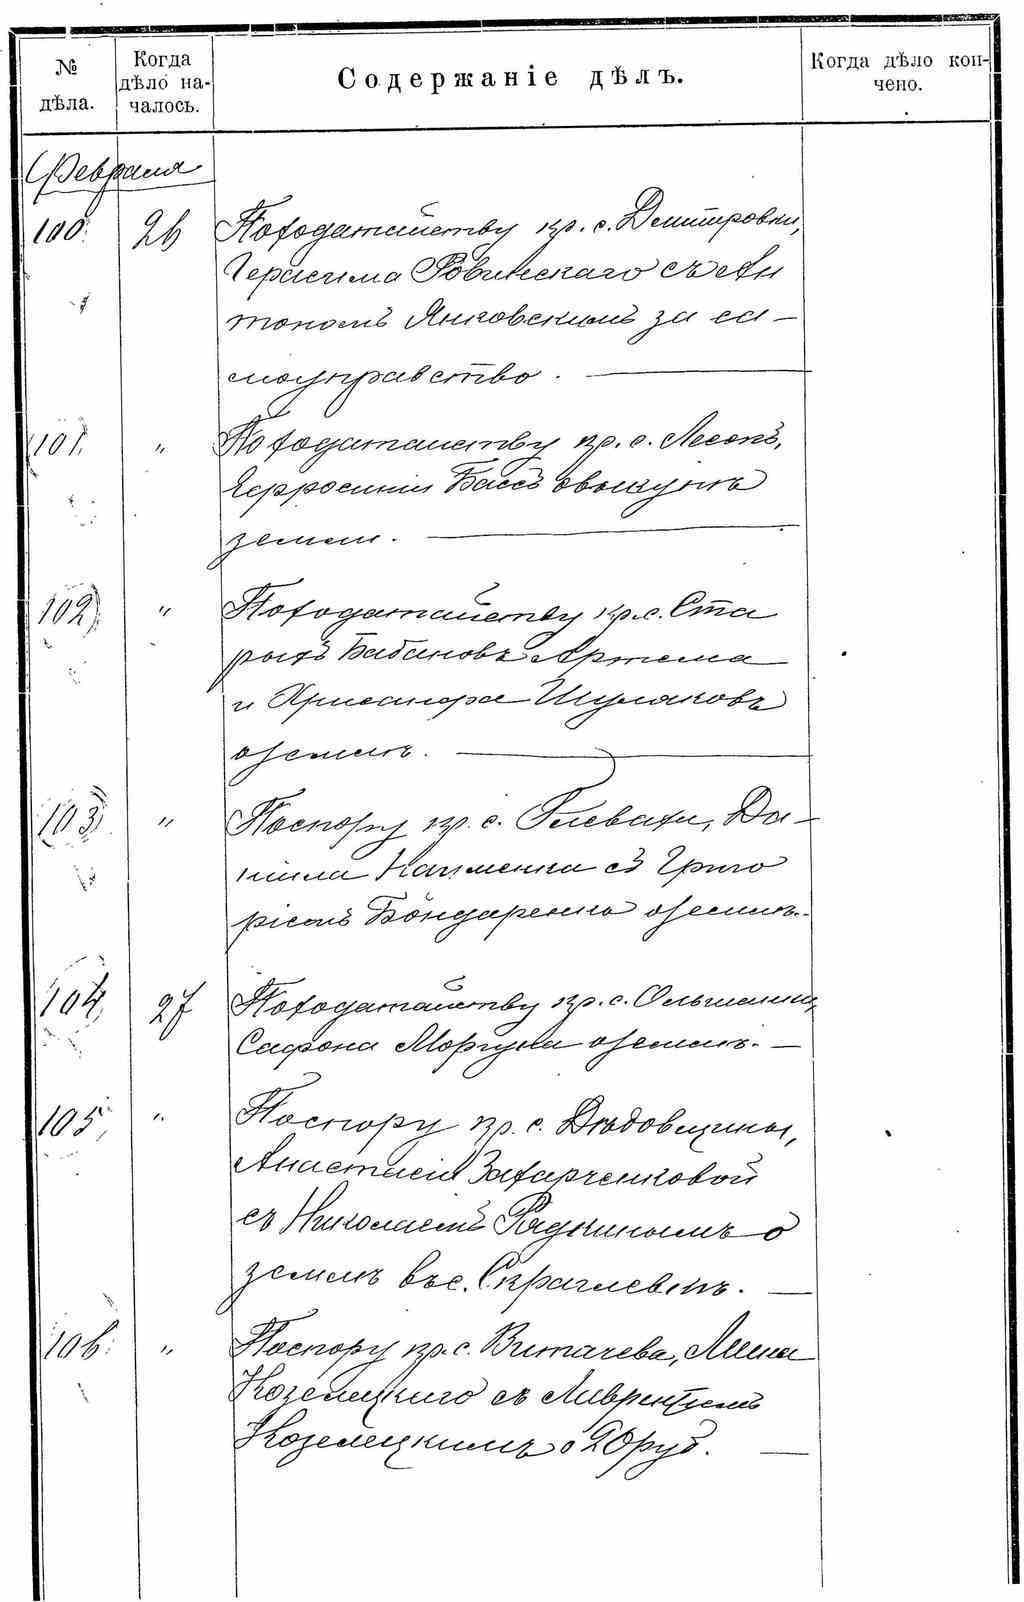 №
дѣла.
Когда
дѣло на-
чалось.
Содержаніе дѣлъ.
Когда дѣло кон-
чено.
Февраля
100. 26 По ходатайству кр. с. Дмитровки,
Герасима Ровинскаго съ Ан
тономъ Янковскимъ за са-
моуправство. —
101. " По ходатайству кр. с. Лесокъ,
Ефросиніи Бассъ о выкупѣ
земли. —
102) " По ходатайству кр. с. Ста
рыхъ Бабановъ Артема
и Хрисанфа Шуляковъ
о землѣ. —
103) " По спору кр. с. Глевахи, Да-
ніила Науменка съ Григо
ріемъ Бондаренко о землѣ.-
104, 27 По ходатайству кр. с. Ольшанки,
Сафона Моргуна о землѣ. —
105, " По спору кр. с. Дѣдовщины,
Анастасіи Захарченковой
съ Николаемъ Радкинымъ о
землѣ въ с. Скраглевкѣ. —
106. " По спору кр. с. Витачева, Мина
Козелецкаго съ Лаврентіемъ
Козелецкимъ о 20 руб. —